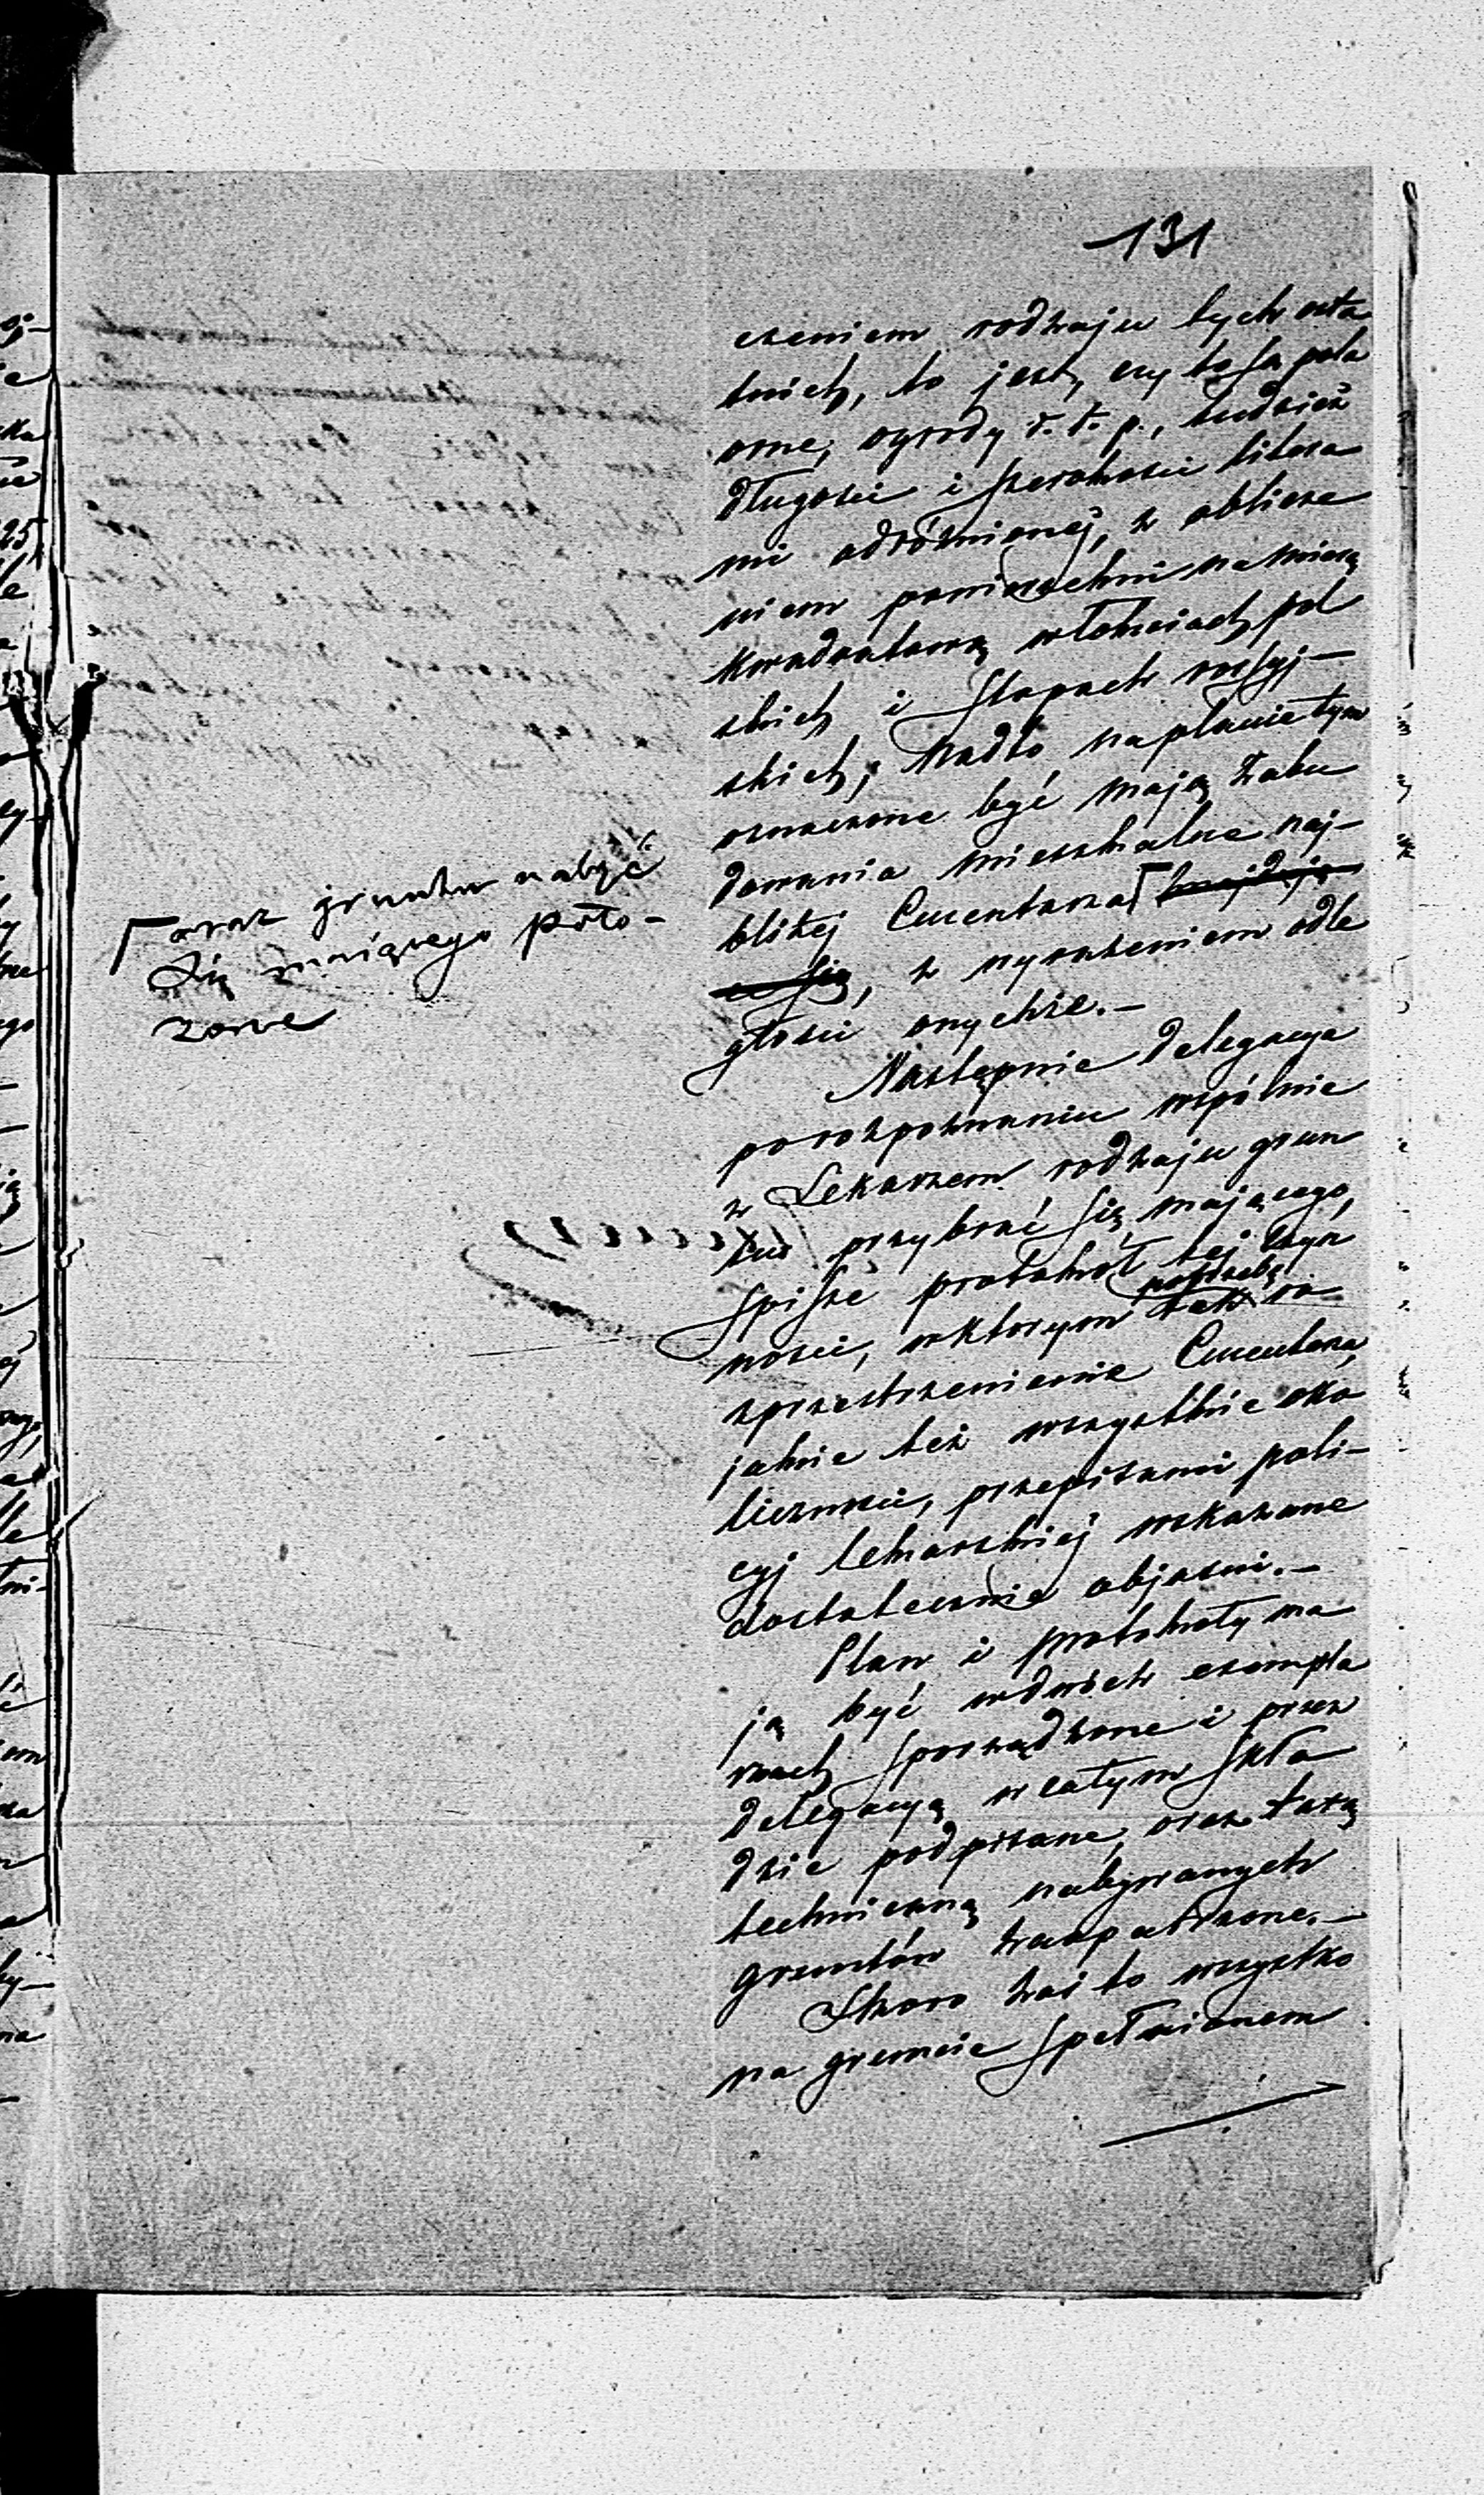 131
czeniem rodzaju tych osta
tnich, to jest, czy to są pola
orne, ogrody i. t. p., tudzież
długości i szerokości litera
mi odróżnionej, z oblicze
niem powierzchni na miarę
kwadratową w łokciach pol
skich i stopach rossyj-
skich; nadto na planie tym
oznaczone być mają zabu
dowania mieszkalne naj-
bliżej Cmentarza znajdują
ce się, z wyrażeniem odle
głości onychże.-
oraz gruntu nabyć
Się mającego poło-
zone
Następnie Delegacya
po rozpoznaniu wspólnie
z Lekarzem rodzaju grun
tu przybrać się mającego,
spisze protokół tej czyn
ności, w którym tak
potrzebę
ro
zprzestrzenienia Cmentarza,
jakoteż wszystkie oko
liczności, przepisami poli-
cyj lekarskiej wskazane
dostatecznie objaśni.-
Plan i protokoły ma
ją być w dwóch exempla
rzach sporządzone i przez
Delegacyą w całym skła
dzie podpisane, oraz taxą
techniczną nabywanych
gruntów zaopatrzone.-
Skoro zaś to wszystko
na gruncie spełnionem